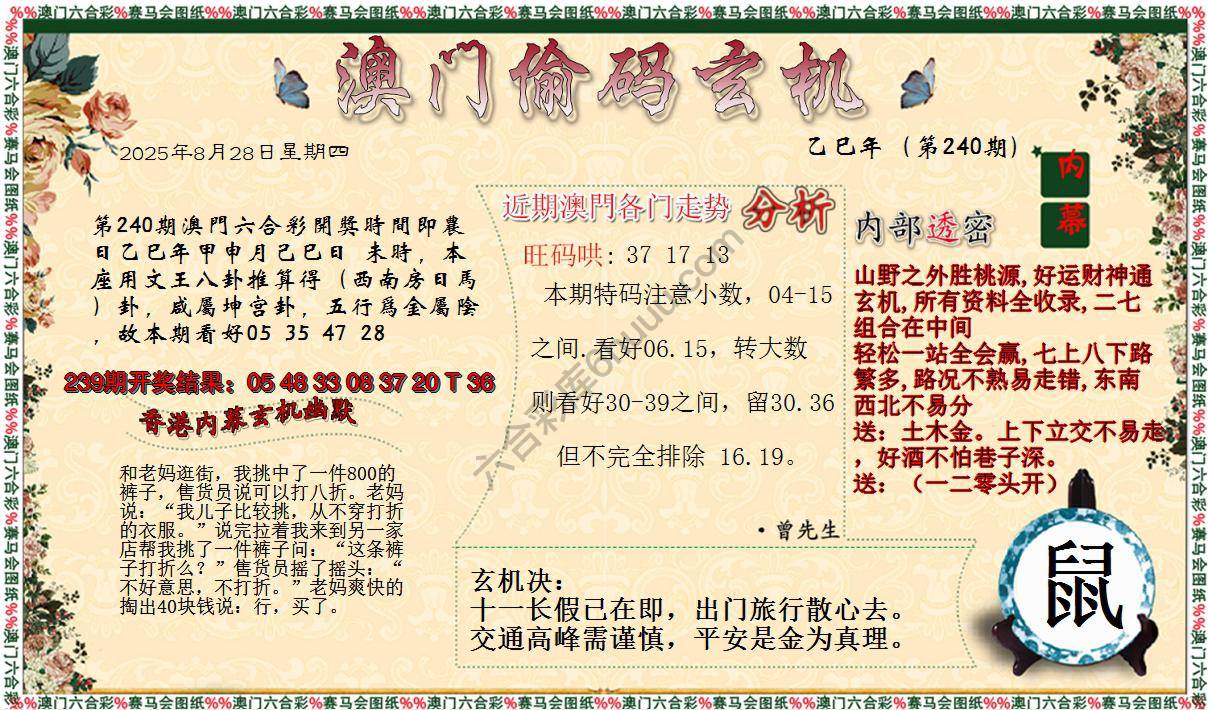 %%澳门六合彩%赛马会图纸%%澳门六合彩%赛马会图纸%%澳门六合彩%赛马会图纸
澳门偷码玄机
2025年8月28日星期四
乙巳年（第240期）
内幕
第240期澳門六合彩開獎時間即農
日乙巳年甲申月己巳日 未時，本
座用文王八卦推算得（西南房日馬
）卦，咸屬坤宫卦，五行爲金屬陰
，故本期看好05 35 47 28
239期开奖结果：05 48 33 08 37 20 T 36
香港内幕玄机幽默
和老妈逛街，我挑中了一件800的
裤子，售货员说可以打八折。老妈
说：“我儿子比较挑，从不穿打折
的衣服。”说完拉着我来到另一家
店帮我挑了一件裤子问：“这条裤
子打折么？”售货员摇了摇头：“
不好意思，不打折。”老妈爽快的
掏出40块钱说：行，买了。
近期澳門各门走势 分析
旺码哄: 37 17 13
本期特码注意小数，04-15
之间.看好06.15，转大数
则看好30-39之间，留30.36
但不完全排除 16.19。
·曾先生
内部透密
山野之外胜桃源,好运财神通
玄机,所有资料全收录,二七
组合在中间
轻松一站全会赢,七上八下路
繁多,路况不熟易走错,东南
西北不易分
送：土木金。上下立交不易走
，好酒不怕巷子深。
送：（一二零头开）
玄机决：
十一长假已在即，出门旅行散心去。
交通高峰需谨慎，平安是金为真理。
鼠
六合彩库6huuu.com